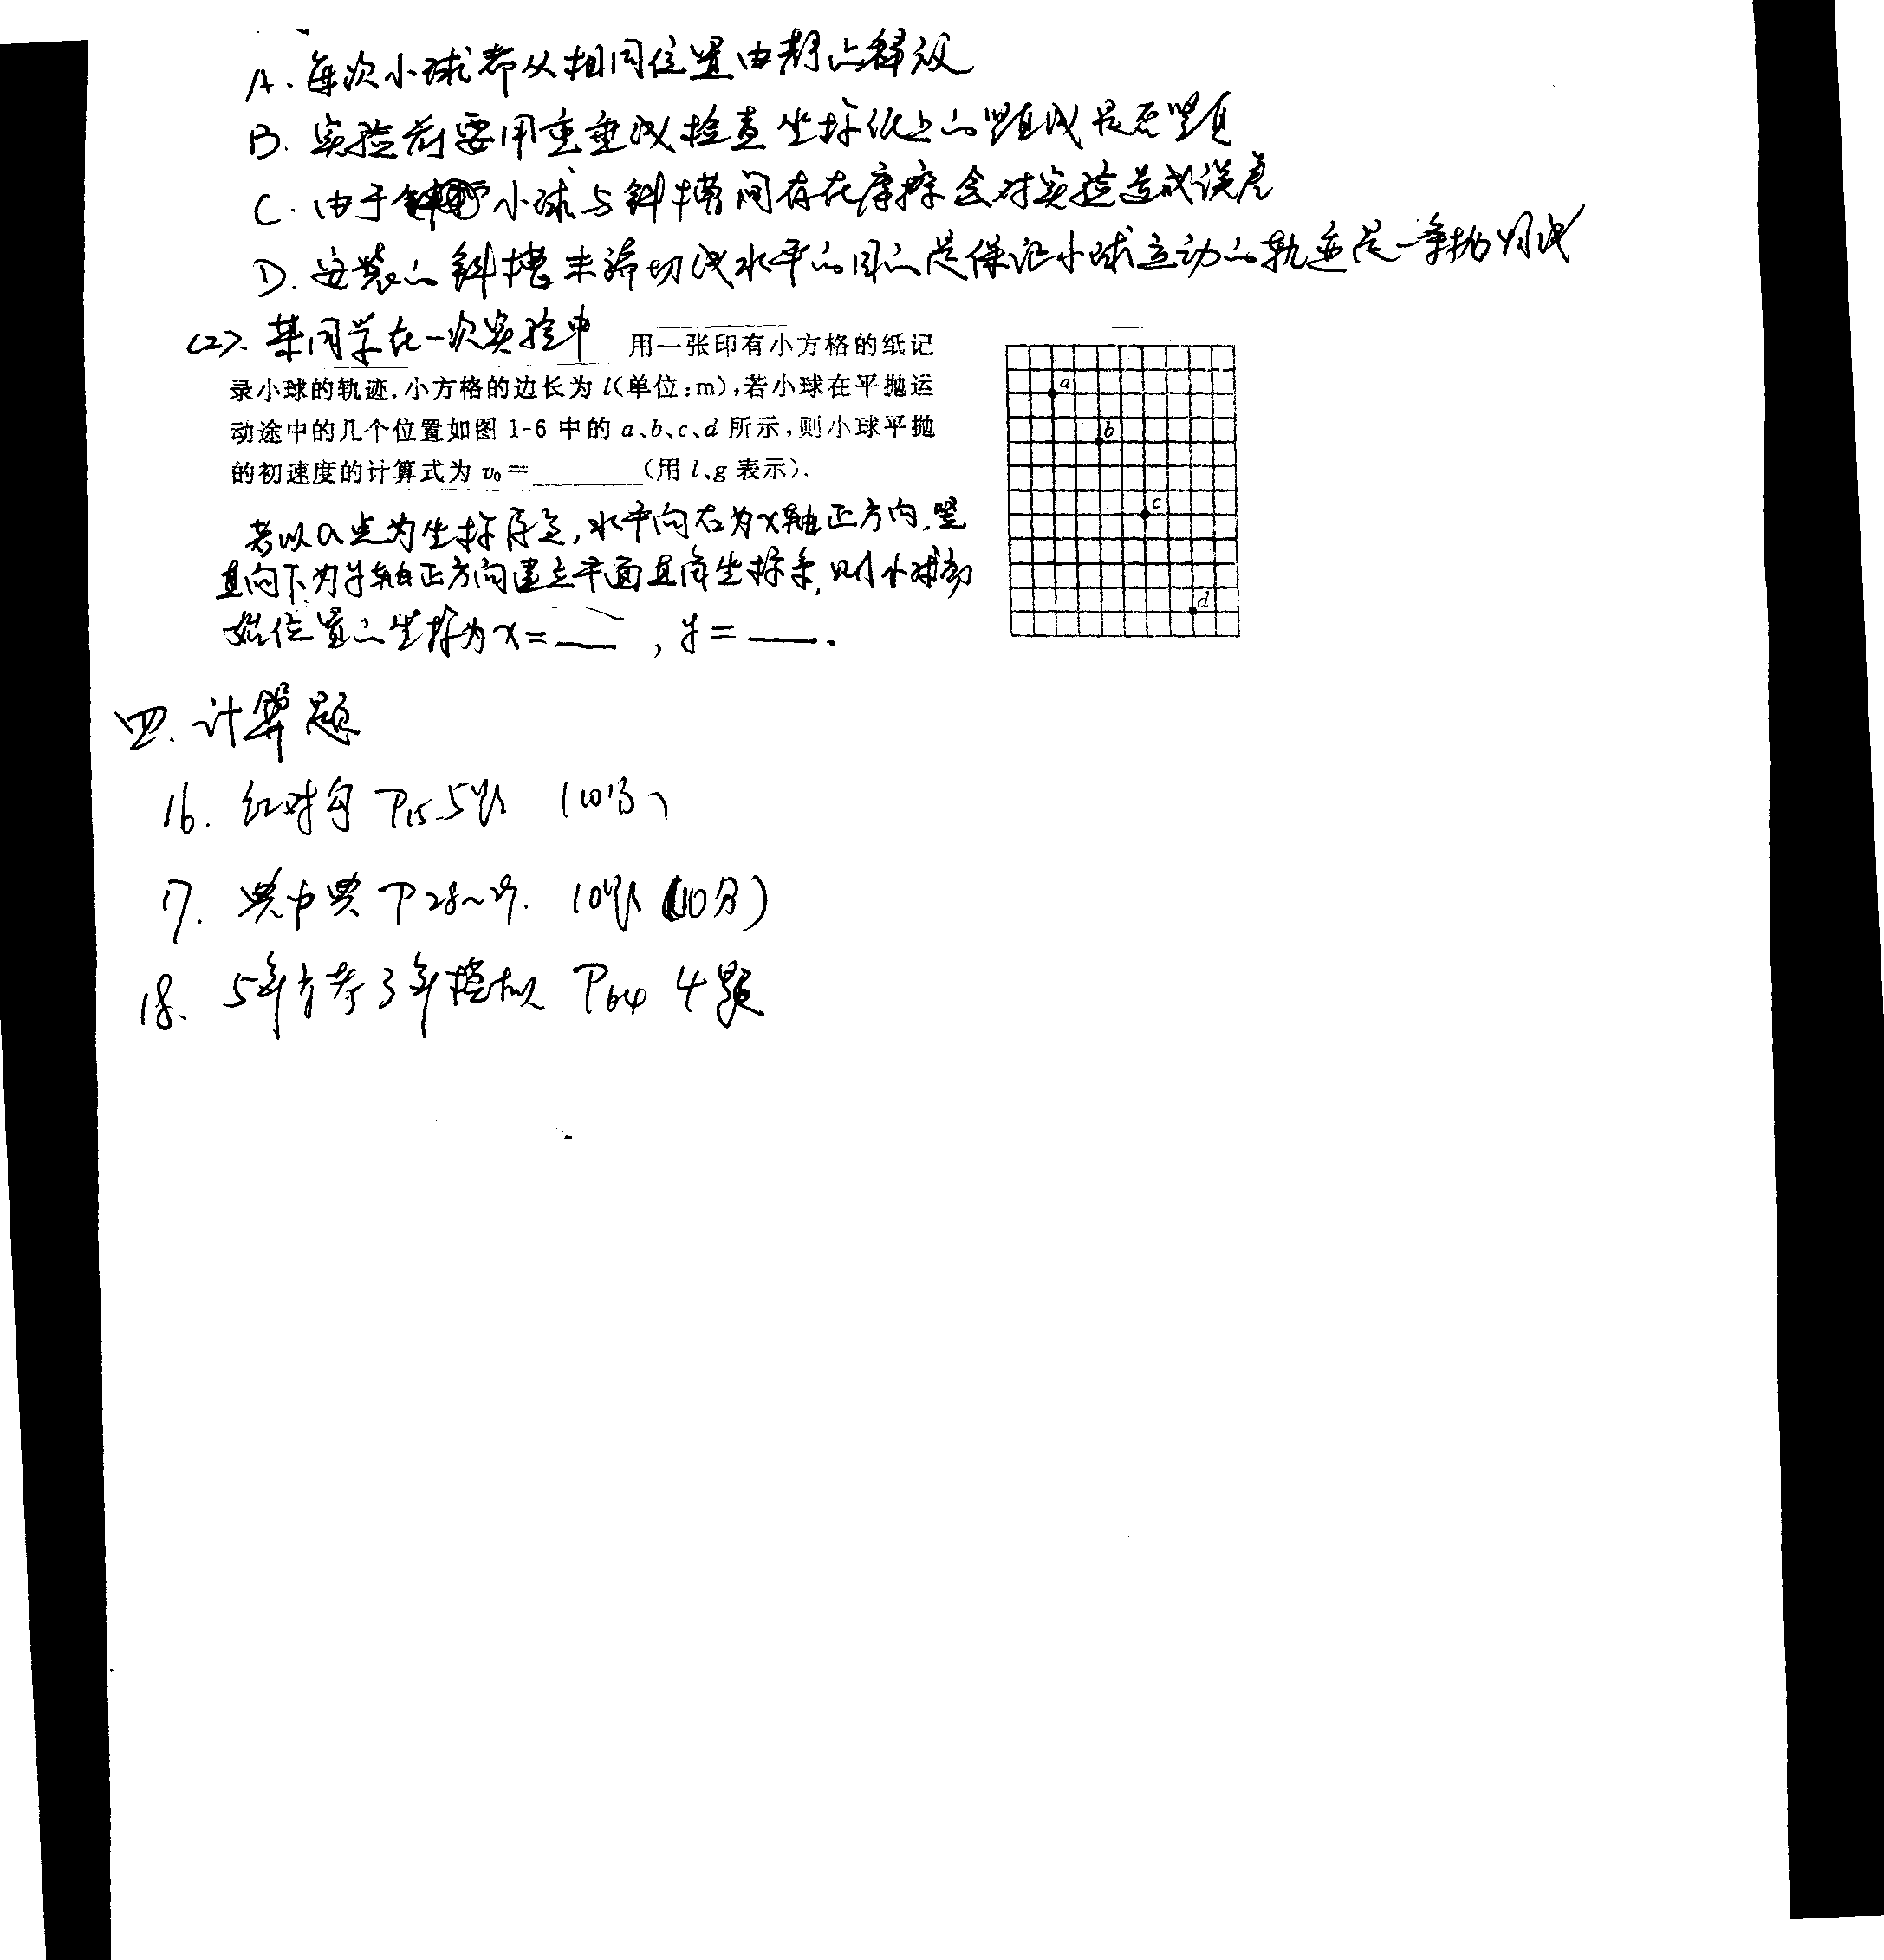 A. 每次小球都从相同位置由静止释放
B. 实验前要用重垂线检查坐标纸上的竖直线是否竖直
C. 由于小球与斜槽间存在摩擦会对实验造成误差
D. 安装的斜槽末端切线水平的目的是保证小球运动的轨迹是一条抛物线
(2). 某同学在一次实验中 用一张印有小方格的纸记
录小球的轨迹.小方格的边长为 l(单位:m),若小球在平抛运
动途中的几个位置如图 1-6 中的 a、b、c、d 所示,则小球平抛
的初速度的计算式为 v₀=________(用 l、g 表示).
a
b
c
d
若以a点为坐标原点,水平向右为x轴正方向,竖
直向下为y轴正方向建立平面直角坐标系,则小球初
始位置的坐标为x=___ , y=___.
四. 计算题
16. 红对勾 P15 5题 (10分)
17. 典中典 P28~29. 10题 (10分)
18. 5年高考3年模拟 P64 4题